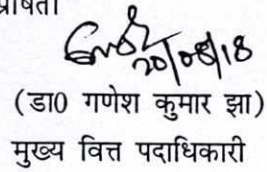 20/08/18
(डा0 गणेश कुमार झा)
मुख्य वित्त पदाधिकारी